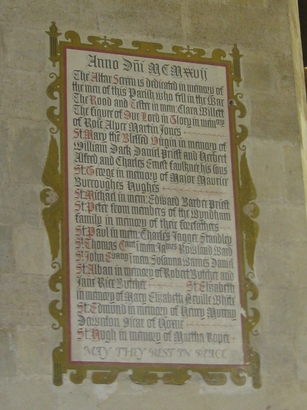 Anno Dñi MCMXXVII
The Altar Screen is dedicated in memory of
the men of this Parish who fell in the War
The Rood and Tester in mem: Clara Willett
The figure of Our Lord in Glory in memory
of Rose Alyce Martin Jones
St Mary the Blessed Virgin in memory of
William Sack Daniel Priest and Herbert
Alfred and Charles Ernest Faulkner his sons
St George in memory of Major Maurice
Burroughes Hughes
St Michael in mem: Edward Barber Priest
St Peter from members of the Wyndham
family in memory of their forefathers
St Paul in mem: Charles Jagger
St Thomas Cant: from Rowland Ward
St John Evang: from Susanna Daniel
St Alban in memory of Robert Butcher and
Jane Rice Butcher St Elisabeth
in memory of Mary Elizabeth Neville White
St Edmund in memory of Henry Murray
of Rome
St Hugh in memory of Martha Roper
MAY THEY REST IN PEACE